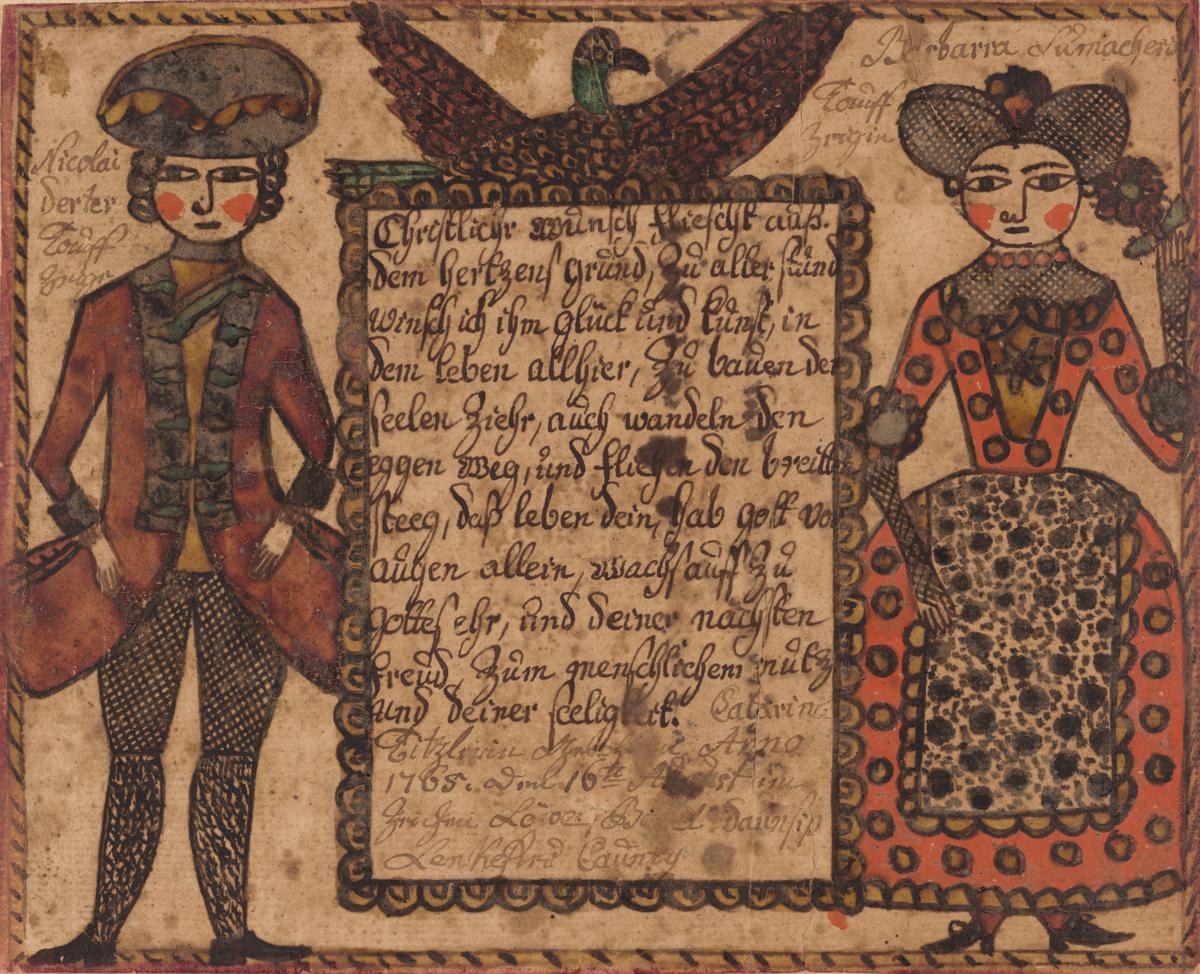 Nicolai
derter
Touff
Barbarra Sumachern
Touff
Zeigin
Christlichr wunsch fliescht auß.
dem hertzens grund, Zu aller stund
winsch ich ihm glück und kunst, in
dem leben allhier, Zu bauen der
seelen Ziehr, auch wandeln den
eggen weg, und fliehen den breitten
steeg, daß leben dein, hab gott vor
augen allein, wachs auff Zu
gottes ehr, und deiner nachsten
freud, Zum menschlichem nutz
und deiner seeligkeit. Catarina
Anno
1765. den 16te August im
Zeichen Löwen
Lenkestru Caunty